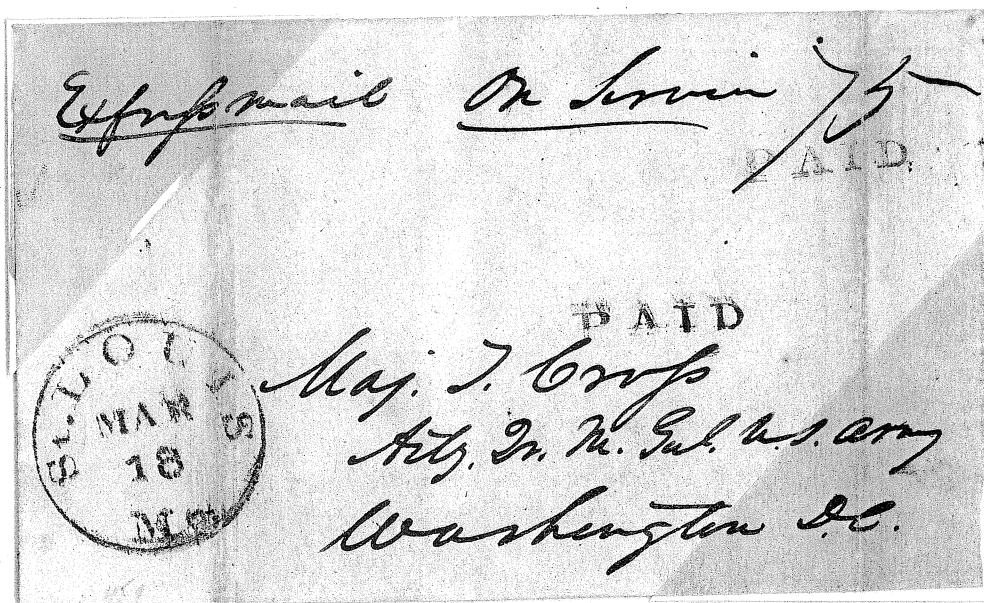 Express mail On Service 75
PAID
PAID
St. LOUIS
MAR
18
Mo.
Maj. T. Cross
Actg. Qr. M. Genl. U.S. Army
Washington D.C.